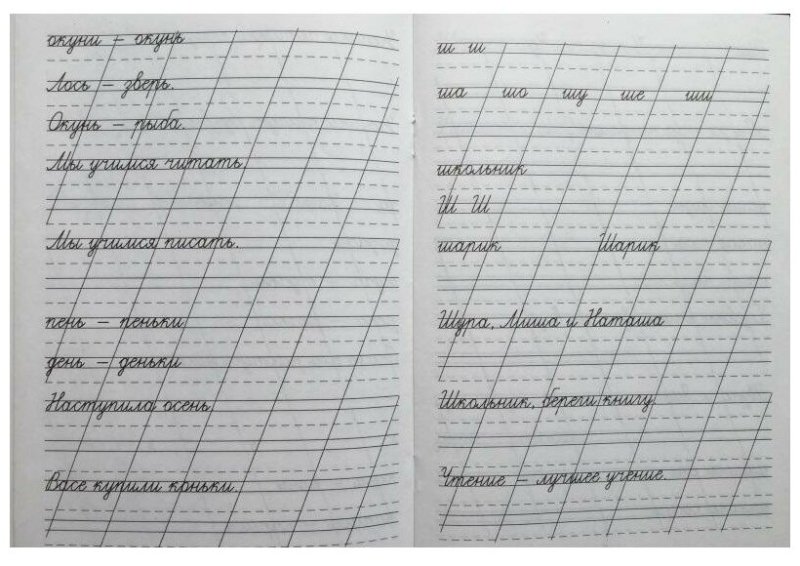 окуни – окунь
Лось – зверь.
Окунь – рыба.
Мы учимся читать.
Мы учимся писать.
пень – пеньки
день – деньки
Наступила осень.
Васе купили коньки.
ш ш
ша шо шу ше ши
школьник
Ш Ш
шарик Шарик
Шура, Миша и Наташа
Школьник, береги книгу.
Чтение – лучшее учение.